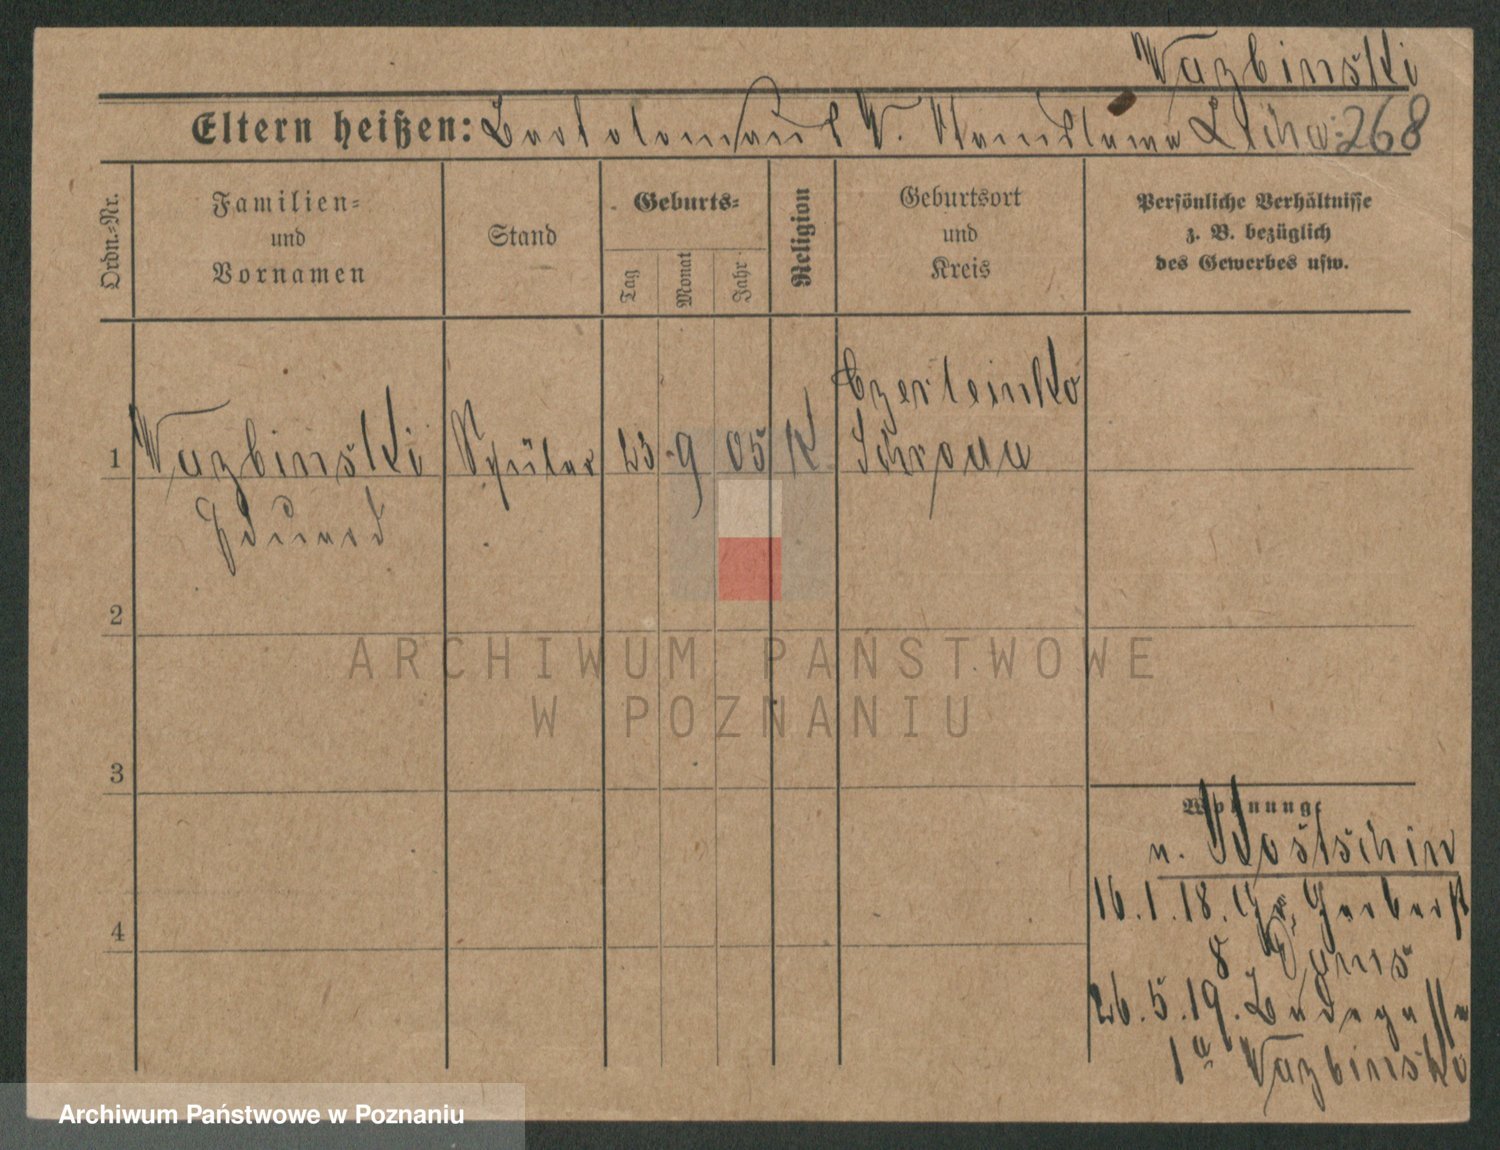 Wazbinski
Eltern heißen: Bartolomäus W. Stanislawa Licha: 268
Ordn.-Nr.
Familien-
und
Vornamen
Stand
Geburts-
Tag
Monat
Jahr
Religion
Geburtsort
und
Kreis
Persönliche Verhältnisse
z. B. bezüglich
des Gewerbes usw.
Czerleinko
1 Wazbinski Schüler 23 9 05 K Schroda
Eduard
2
3
4
Wohnung:
v. Kostschin
16.1.18. Gr. Gerberst
8
26.5.19. Badegasse
1a Wazbinska
ARCHIWUM PAŃSTWOWE
W POZNANIU
Archiwum Państwowe w Poznaniu